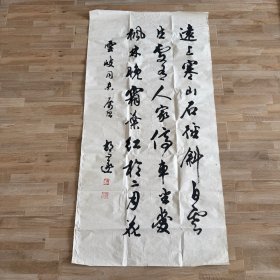 遠上寒山石徑斜白雲
生處有人家停車坐愛
楓林晚霜葉紅於二月花
同志